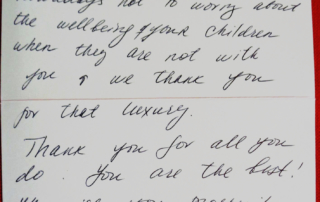 not to worry about
the wellbeing of your children
when they are not with
you & we thank you
for that luxury.
Thank you for all you
do. You are the best!